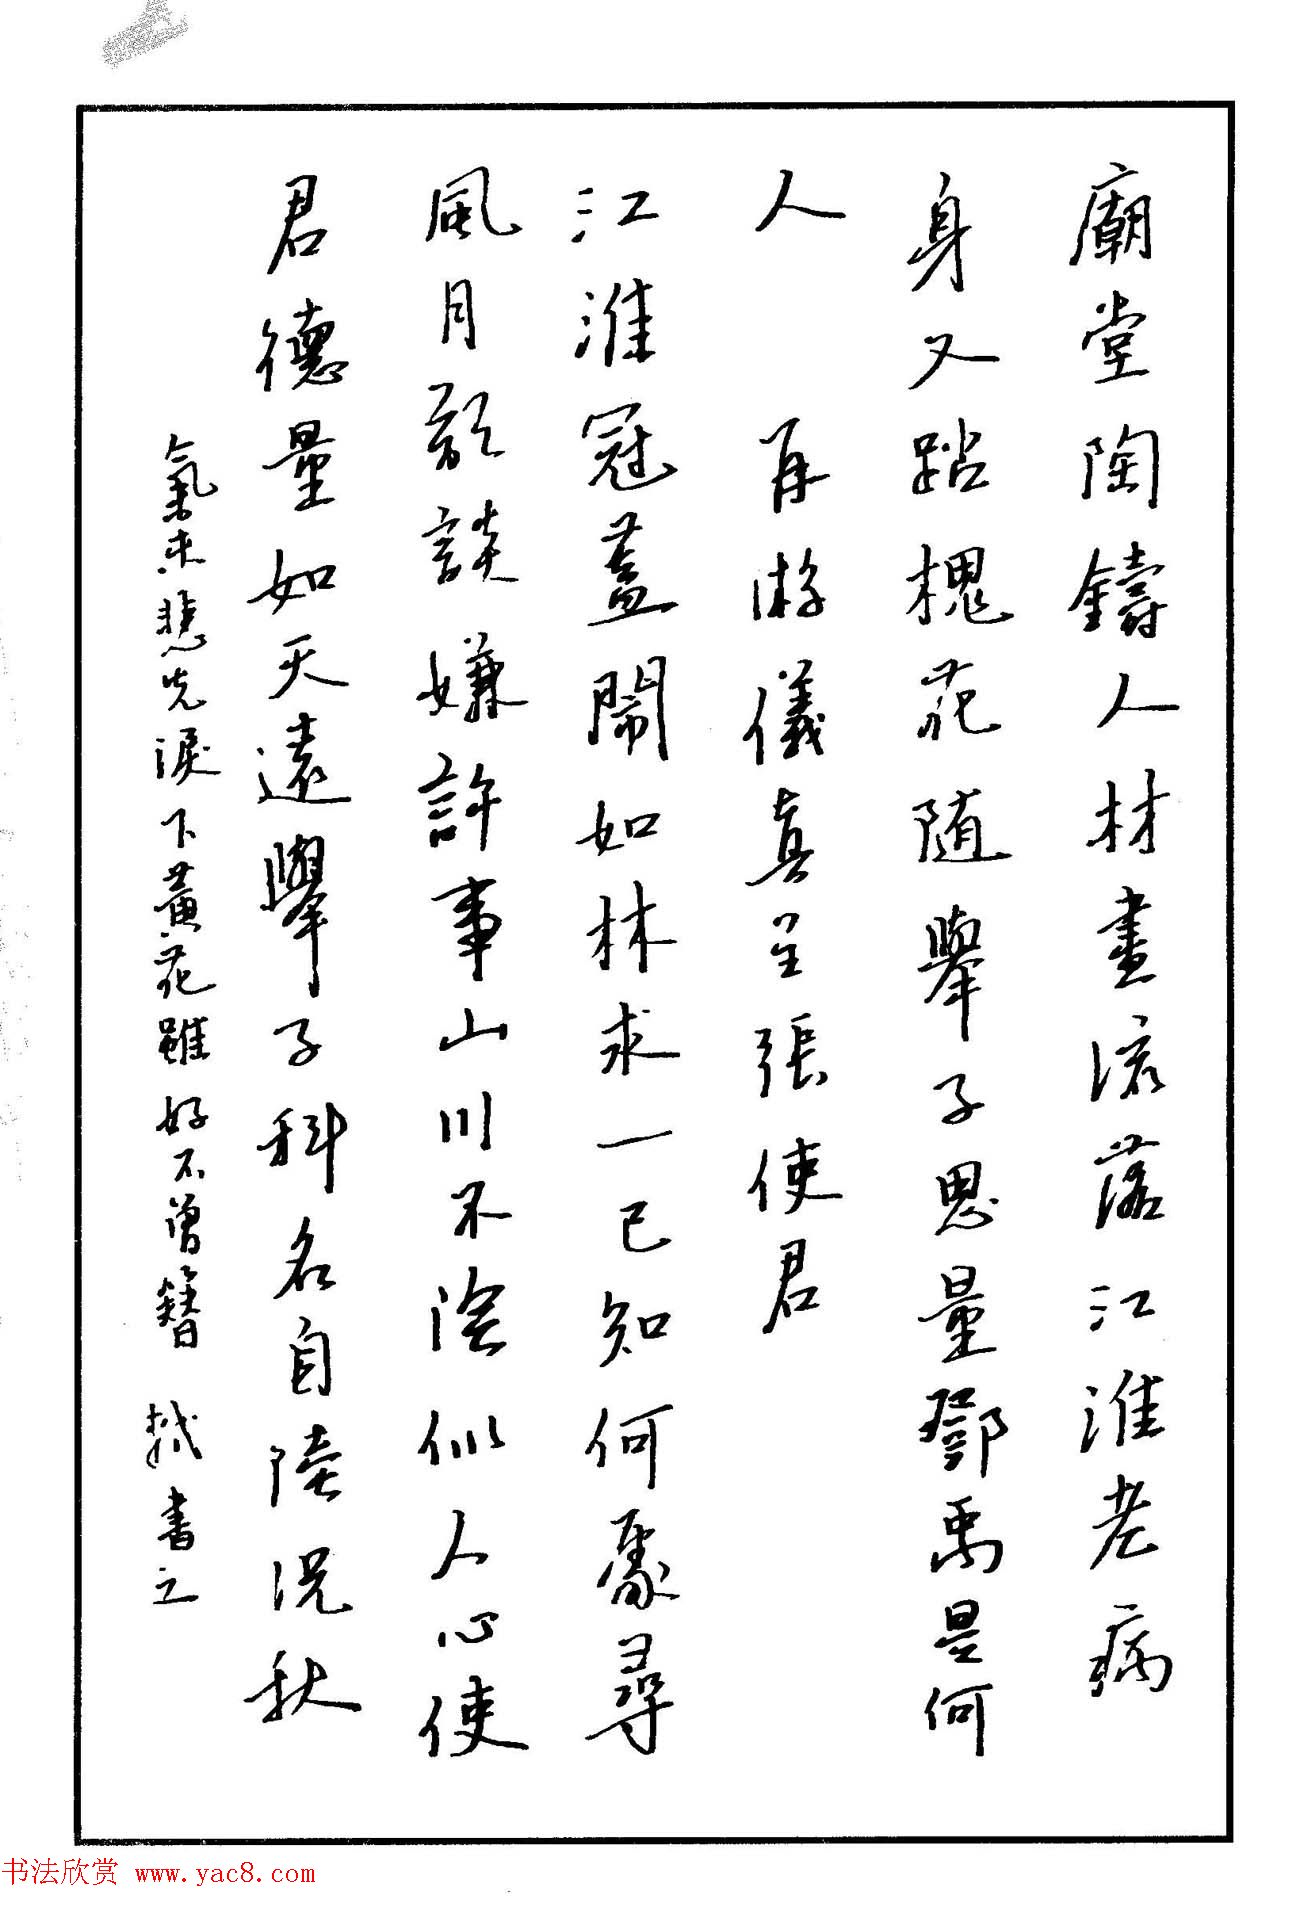 廟堂陶鑄人材盡流落江淮老病
身又踏槐花随舉子思量鄧禹是何
人　再游儀真呈張使君
江淮冠蓋鬧如林求一已知何處尋
風月欲談嫌許事山川不險似人心使
君德量如天遠舉子科名自陸沉秋
氣未悲先淚下黃花雖好不曾簪　書之
书法欣赏 www.yac8.com